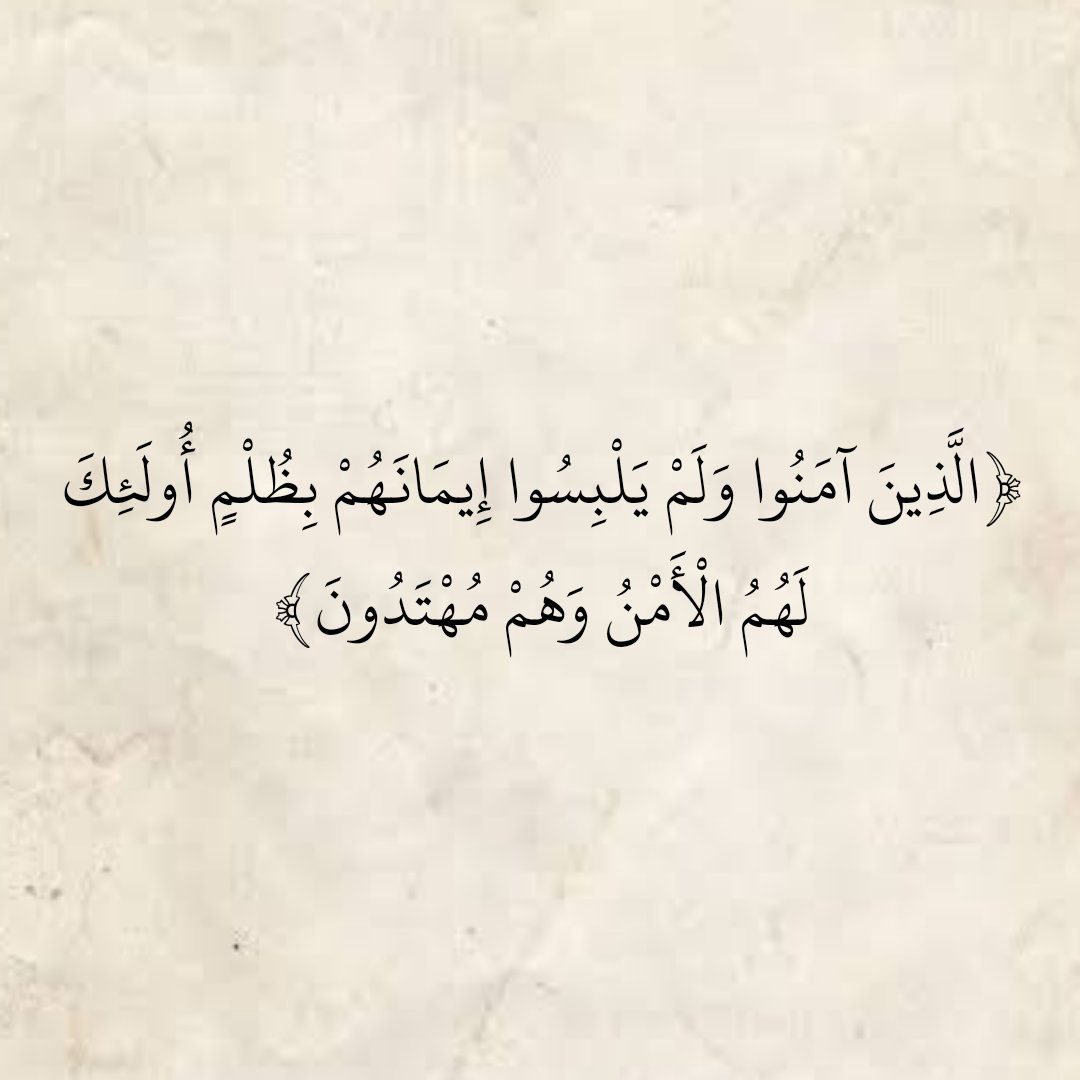 ﴿الَّذِينَ آمَنُوا وَلَمْ يَلْبِسُوا إِيمَانَهُمْ بِظُلْمٍ أُولَئِكَ
لَهُمُ الْأَمْنُ وَهُمْ مُهْتَدُونَ﴾